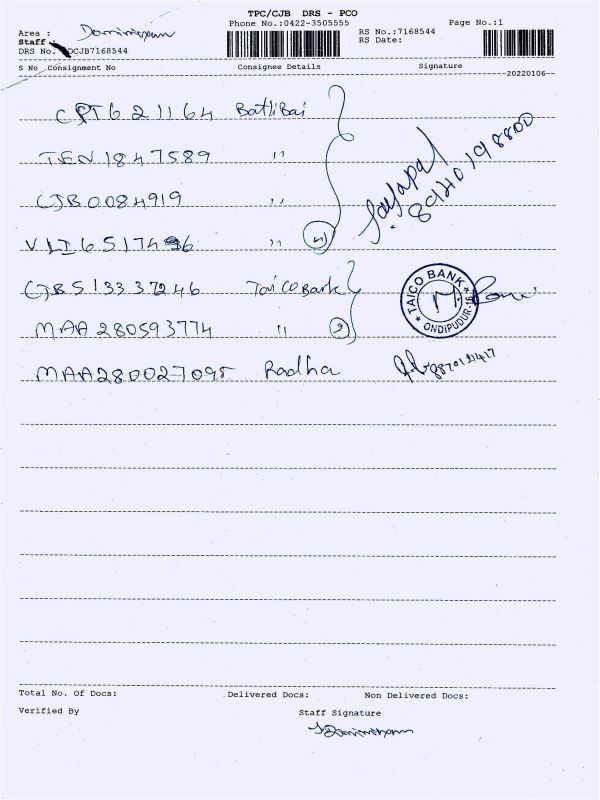 TPC/CJB DRS - PCO
Phone No.:0422-3505555
Page No.:1
Area :
Staff :
RS No.:7168544
DRS No. DCJB7168544
RS Date:
S No Consignment No Consignee Details Signature
20220106
CPT621164 Batlibai
TEN1847589 "
CJB0084919 "
VLI6517496 " 4
Jayapal
8940198800
CJB513337246 Taico Bank
MAA280593774 " 2
TAICO BANK
ONDIPUDUR-16
MAA280027095 Radha
Total No. Of Docs: Delivered Docs: Non Delivered Docs:
Verified By Staff Signature